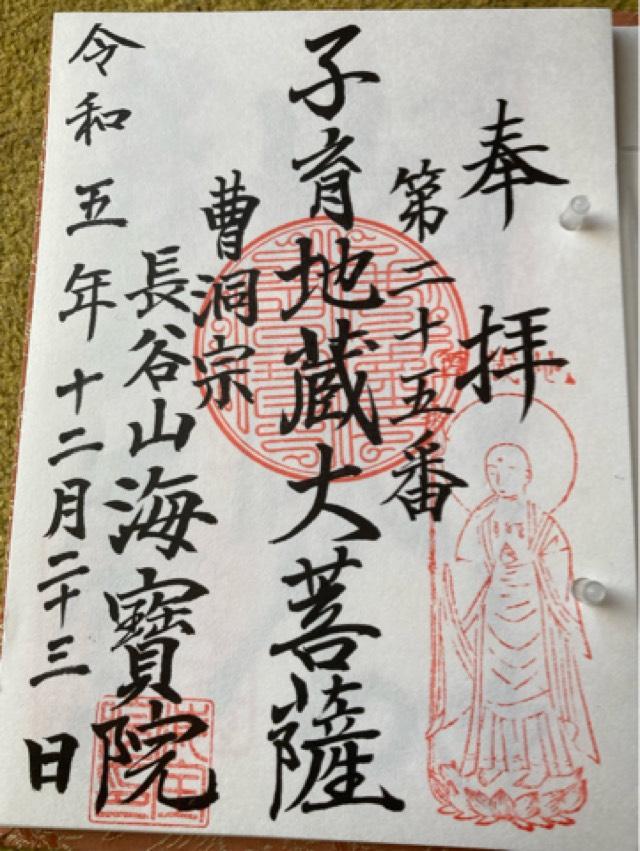 奉拝
第二十五番
子育地蔵大菩薩
曹洞宗
長谷山海寶院
令和五年十二月二十三日